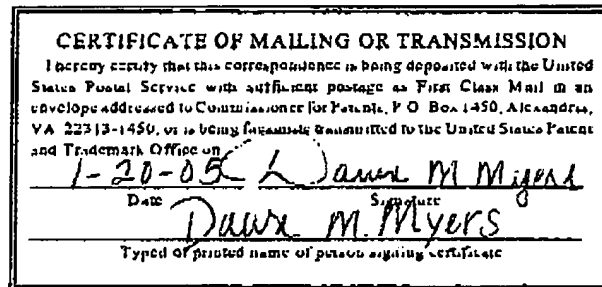 CERTIFICATE OF MAILING OR TRANSMISSION
I hereby certify that this correspondence is being deposited with the United
States Postal Service with sufficient postage as First Class Mail in an
envelope addressed to Commissioner for Patents, P O Box 1450, Alexandria,
VA 22313-1450, or is being facsimile transmitted to the United States Patent
and Trademark Office on
1-20-05 Dawn M Myers
Date Signature
Dawn M. Myers
Typed or printed name of person signing certificate